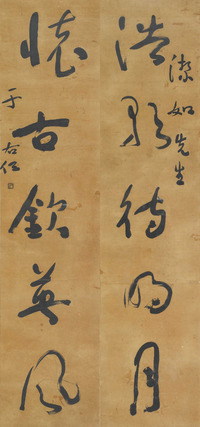 潔如先生
浩歌待明月
懷古欽英風
于右任